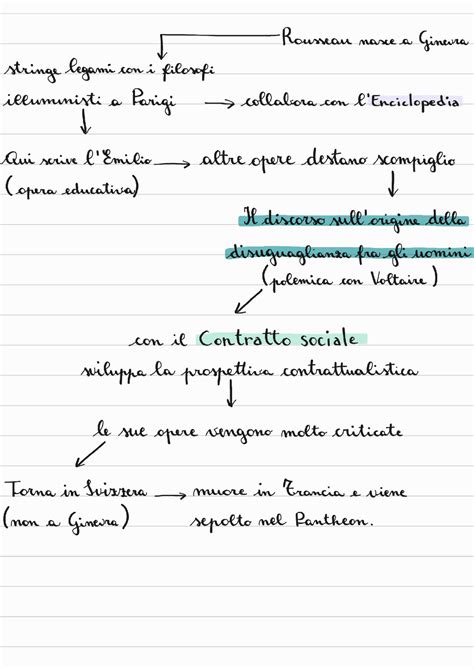 Rousseau nasce a Ginevra
stringe legami con i filosofi
illuministi a Parigi → collabora con l'Enciclopedia
Qui scrive l'Emilio → altre opere destano scompiglio
(opera educativa)
Il discorso sull'origine della
disuguaglianza fra gli uomini
(polemica con Voltaire)
con il Contratto sociale
sviluppa la prospettiva contrattualistica
le sue opere vengono molto criticate
Torna in Svizzera → muore in Francia e viene
(non a Ginevra) sepolto nel Pantheon.